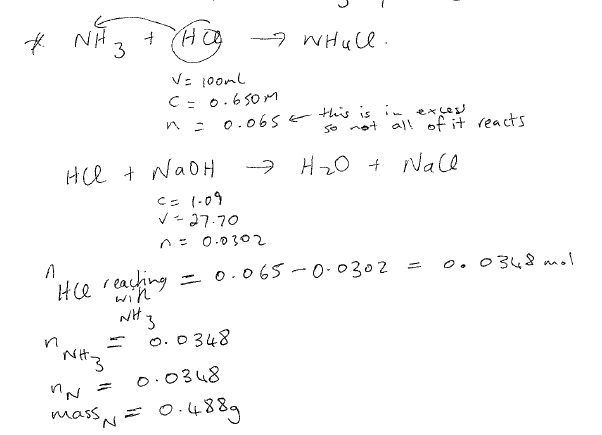 * NH3 + HCl → NH4Cl.
V = 100mL
C = 0.650M
n = 0.065 ← this is in excess
so not all of it reacts
HCl + NaOH → H2O + NaCl
C = 1.09
V = 27.70
n = 0.0302
n HCl reacting with NH3 = 0.065 - 0.0302 = 0.0348 mol
n NH3 = 0.0348
n N = 0.0348
mass N = 0.488g